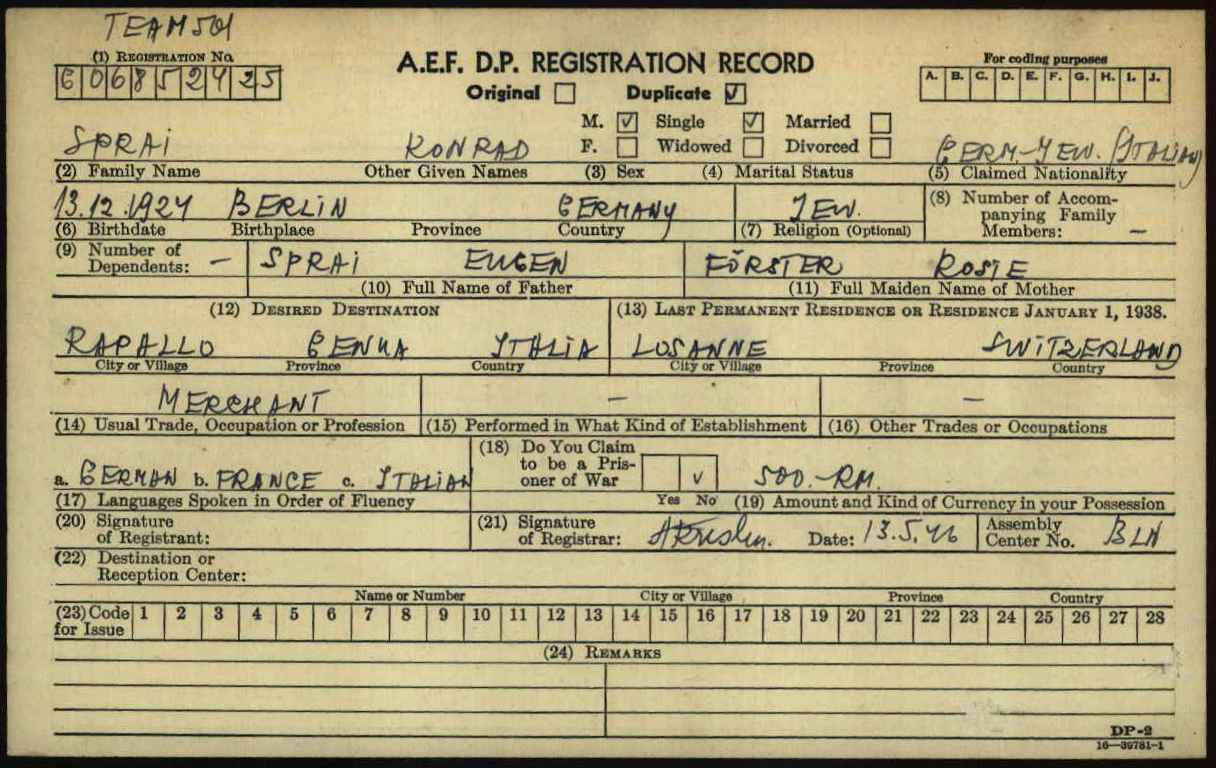 TEAM 501
(1) REGISTRATION No.
G06852425
A.E.F. D.P. REGISTRATION RECORD
Original Duplicate ✓
For coding purposes
A. B. C. D. E. F. G. H. I. J.
M. ✓ Single ✓ Married
F. Widowed Divorced
SPRAI KONRAD GERM.-JEW. (ITALIAN)
(2) Family Name Other Given Names (3) Sex (4) Marital Status (5) Claimed Nationality
13.12.1924 BERLIN GERMANY JEW.
(6) Birthdate Birthplace Province Country (7) Religion (Optional)
(8) Number of Accom-
panying Family
Members: –
(9) Number of
Dependents: –
SPRAI EUGEN FÖRSTER ROSIE
(10) Full Name of Father (11) Full Maiden Name of Mother
(12) DESIRED DESTINATION (13) LAST PERMANENT RESIDENCE OR RESIDENCE JANUARY 1, 1938.
RAPALLO GENUA ITALIA LOSANNE SWITZERLAND
City or Village Province Country City or Village Province Country
MERCHANT – –
(14) Usual Trade, Occupation or Profession (15) Performed in What Kind of Establishment (16) Other Trades or Occupations
a. GERMAN b. FRANCE c. ITALIAN
(17) Languages Spoken in Order of Fluency
(18) Do You Claim
to be a Pris-
oner of War
✓
Yes No
500.-RM.
(19) Amount and Kind of Currency in your Possession
(20) Signature
of Registrant:
(21) Signature
of Registrar:
Date: 13.5.46
Assembly
Center No. BLN
(22) Destination or
Reception Center:
Name or Number City or Village Province Country
(23) Code
for Issue
1 2 3 4 5 6 7 8 9 10 11 12 13 14 15 16 17 18 19 20 21 22 23 24 25 26 27 28
(24) REMARKS
DP-2
16—39781-1